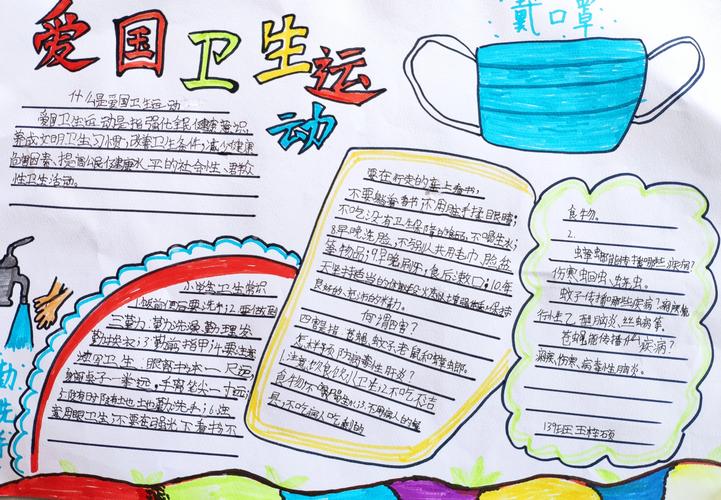 爱国卫生运动
戴口罩
什么是爱国卫生运动
爱国卫生运动是指强化全民健康意识,
养成文明卫生习惯,改善卫生条件,减少健康
危害因素,提高公民健康水平的社会性、群众
性卫生活动。
小学生卫生常识
1.饭前便后要洗手;2.要做到
三勤:勤洗澡勤理发
勤换衣;3.勤剪指甲;
眼卫生:眼离书本一尺远
离桌子一拳远,手离笔尖一寸远;
勤洗手;6.注
意用眼卫生;不要在强光下看书不
要在行走的车上看书,
不要躺着看书;不用脏手揉眼睛;
不吃没有卫生保障的食品,不喝生水;
8.早晚洗脸,不与别人共用毛巾、脸盆
等物品;9.早晚刷牙;食后漱口;10.每
天坚持适当的体
良好的、充沛的
何谓四害?
四害指:苍蝇、蚊子、老鼠和蟑螂。
怎样预防病毒性肝炎?
1.注意饮食饮水卫生;2.不吃不洁
食物不喝生水;3.不用病人的餐
具,不吃病人吃剩的
食物。
2.
蟑螂能传播哪些疾病?
伤寒、蛔虫、蛲虫。
蚊子传播哪些疾病?
丝虫病等。
苍蝇能传播什么疾病?
痢疾、伤寒、病毒性肝炎。
勤洗手